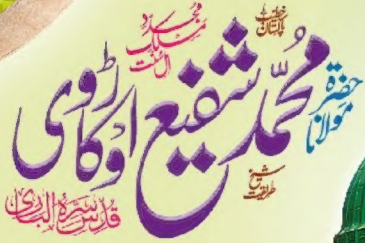 خطیب پاکستان
مجدد مسلک اہل سنت
حضرۃ مولانا
محمد شفیع اوکاڑوی
شیخ طریقت
قدس سرہ الباری